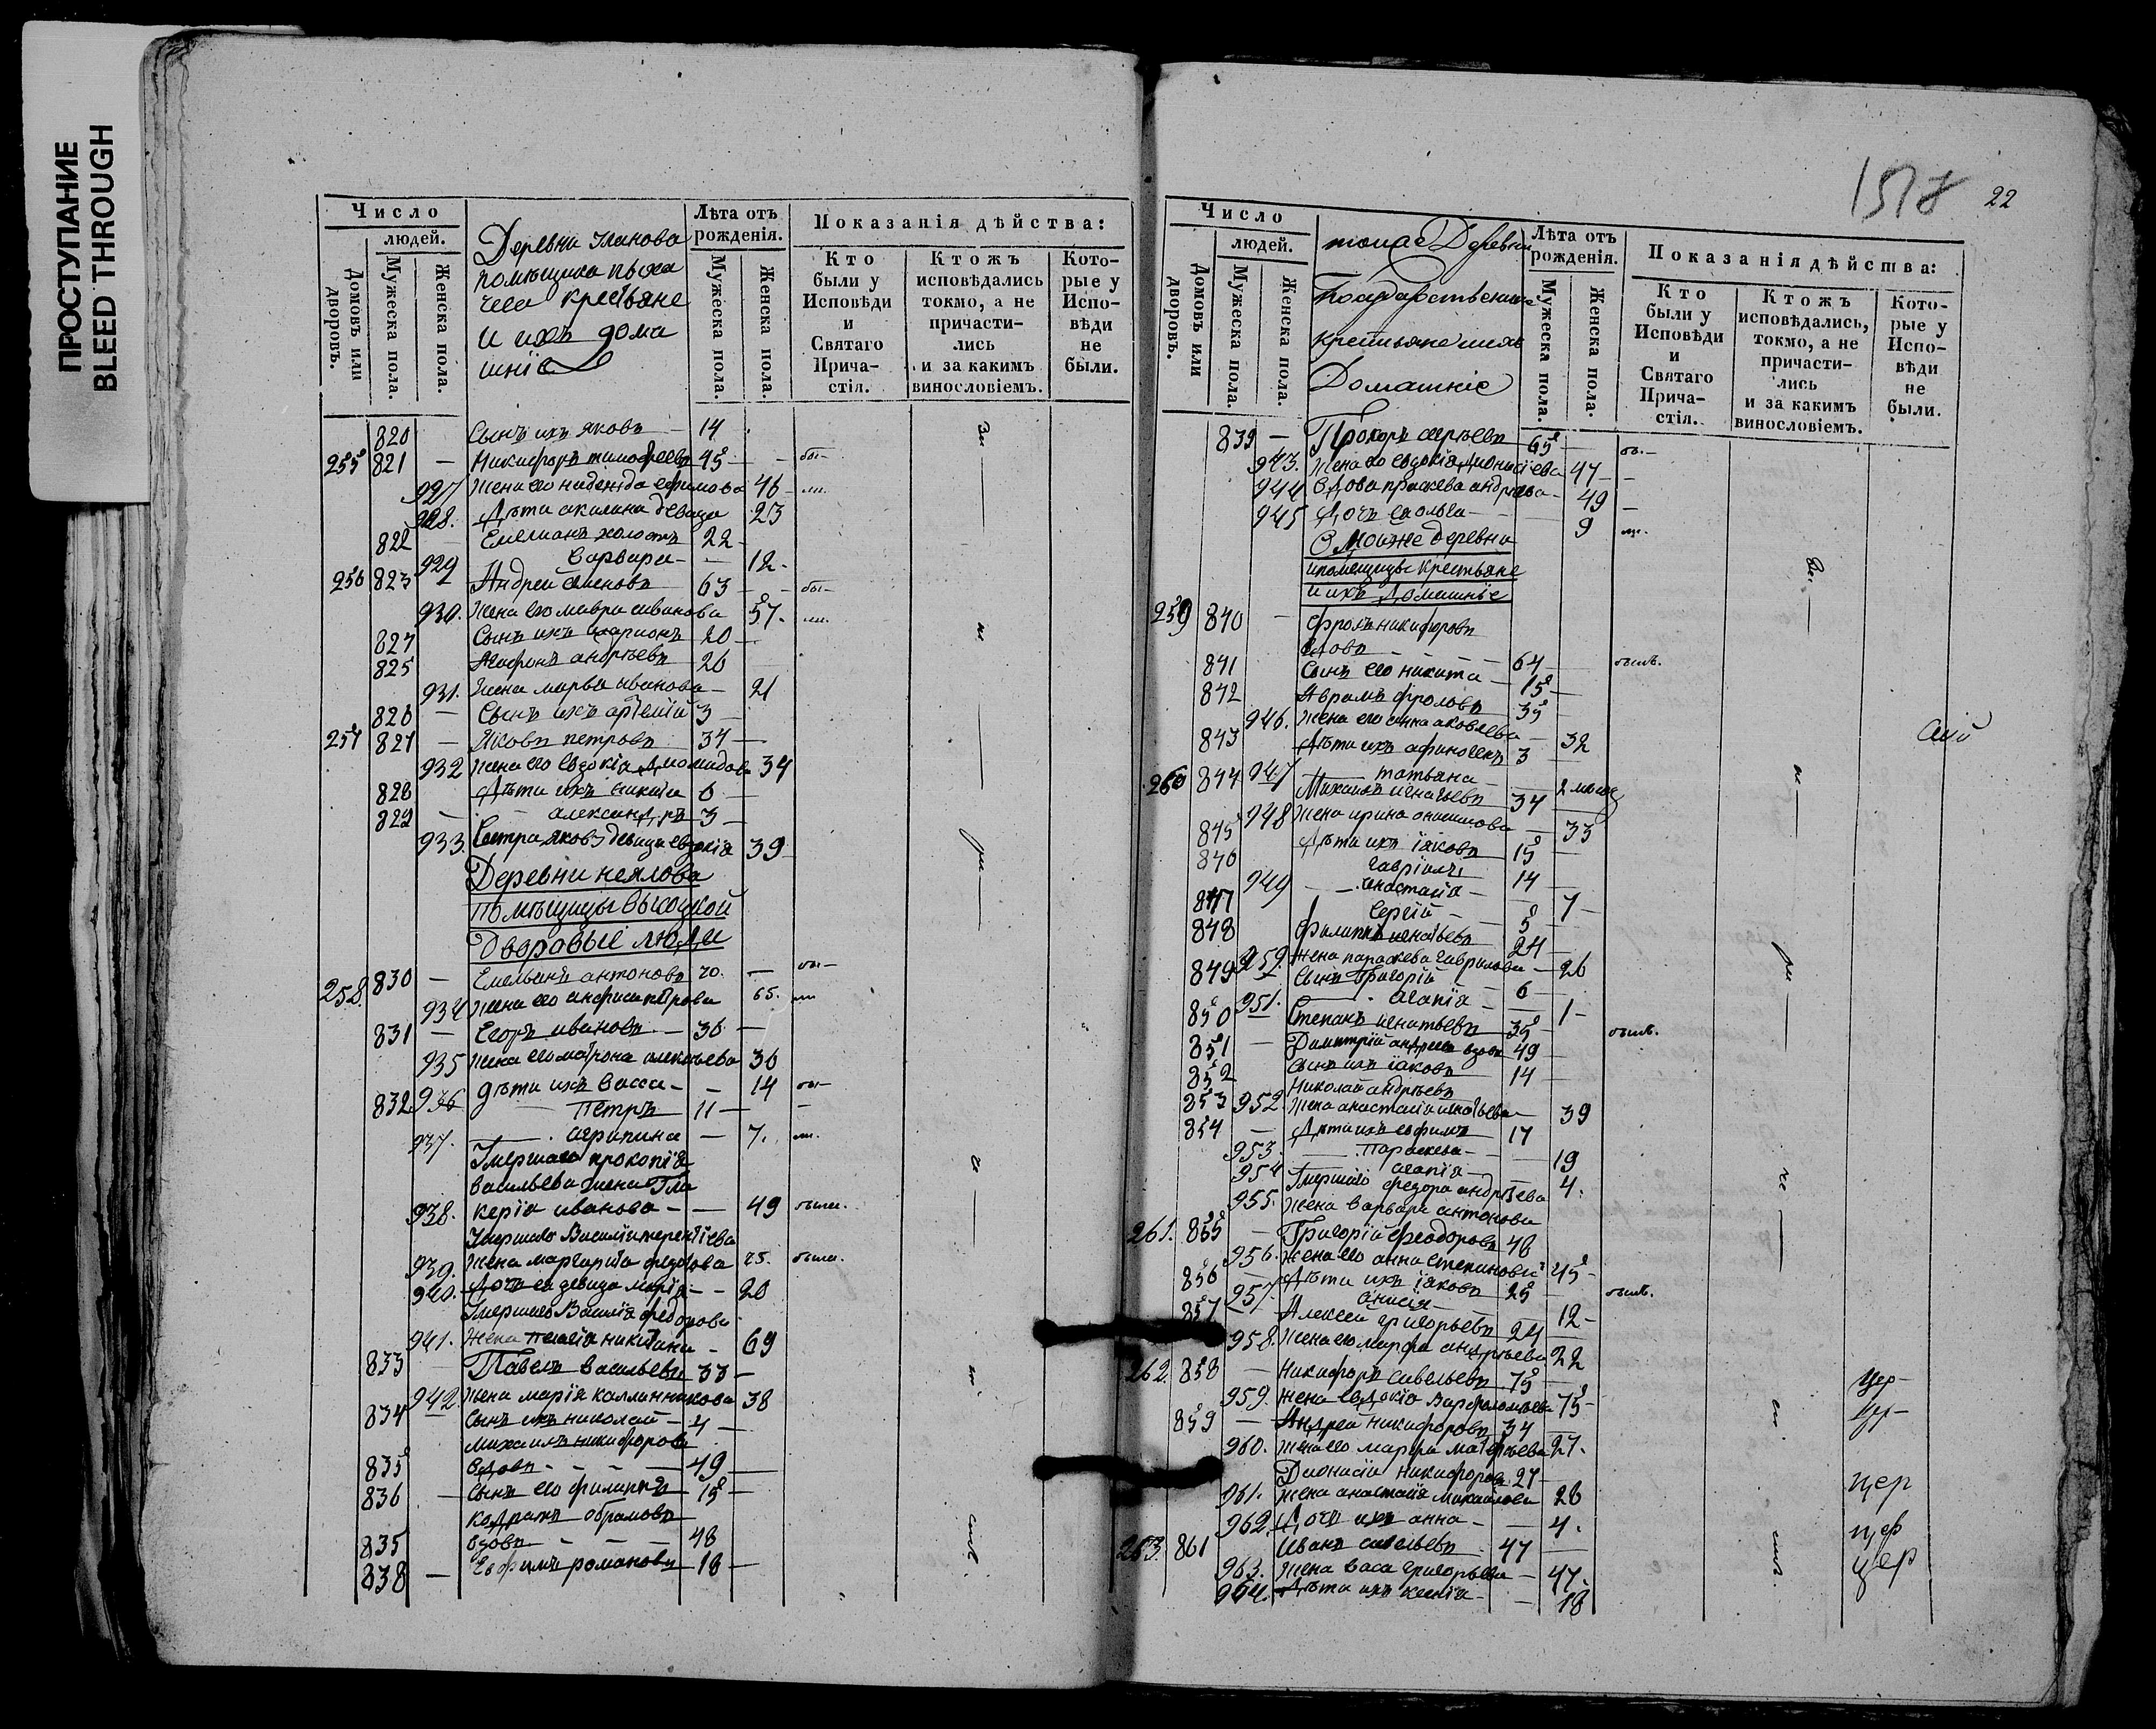 ПРОСТУПАНИЕ
BLEED THROUGH
Число
людей.
Домовъ или дворовъ.
Мужеска пола.
Женска пола.
Деревни
помѣщика
крестьяне
и ихъ дома
шніе
Лѣта отъ рожденія.
Мужеска пола.
Женска пола.
Показанія дѣйства:
Кто были у Исповѣди и Святаго Прича-стія.
Ктожъ исповѣдались токмо, а не причасти-лись и за какимъ винословіемъ.
Кото-рые у Испо-вѣди не были.
820 Сынъ ихъ яковъ — 14
255 821 — Никифоръ тимофеевъ 45 — бы—
927 Жена его надежда ефимова 46 — ли.
928. Дѣти акилина девица 23
822 — Емелианъ холостъ 22 —
929 Варвара — — 12 —
256 823 — Андрей 63 — бы—
930. Жена его мавра иванова 57. ли.
824 Сынъ ихъ иларионъ 20 —
825 Агафонъ андрѣевъ 26
931. Жена марѳа иванова — 21
826 — Сынъ ихъ артемій 3 —
257 827 — Яковъ петровъ 34 —
932 Жена его евдокія 34
828 Дѣти ихъ никита 6 —
829 — александръ 3 —
933. Сестра якова девица евдокія 39
Деревни неялова
Помѣщицы высоцкой
Дворовые люди
258. 830 — Емельянъ антоновъ 70. — бы—
934 Жена его анфиса петрова 65. ли
831 — Егоръ ивановъ — 36 —
935 Жена его матрона алексѣева 36
936 дѣти ихъ Васса — — 14 бы—
832 — Петръ 11 — —
937. — агрипина — 7. ли.
Умершаго прокопія
васильева жена Гли
938. керія иванова — — 49 были.
Умершаго Василія терентіева
939. Жена маргарита федотова 75. была.
940. Дочь ея девица марія — — 20
Умершаго Василія федорова
941. Жена пелагія никитина — 69
833 — Павелъ васильевъ 33 —
942. Жена марія каллинникова 38
834 Сынъ ихъ николай — 4 —
михаилъ никифоровъ
835 вдовъ — — — 49 —
836 — Сынъ его филиппъ 15 —
кодратъ абрамовъ
835 вдовъ — — — 48
838 — Евфимъ романовъ 18 —
1578 22
Число
людей.
Домовъ или дворовъ.
Мужеска пола.
Женска пола.
тоиже Деревни
Государственные
Крестьяне ихъ
Домашніе
Лѣта отъ рожденія.
Мужеска пола.
Женска пола.
Показанія дѣйства:
Кто были у Исповѣди и Святаго Прича-стія.
Ктожъ исповѣдались, токмо, а не причасти-лись и за какимъ винословіемъ.
Кото-рые у Испо-вѣди не были.
839 — Прохоръ 65 — бы.—
943. Жена его евдокія дионисіева 47 — —
944 Вдова праскева андрѣева — 49 —
945 Дочь ея ольга — — 9 ли.
Тоиже деревни
помещицы крестьяне
и ихъ Домашніе
259 840 — Фролъ никифоровъ
вдовъ — — — 64 — былъ.
841 Сынъ его никита — 15 —
842 Аврамъ фроловъ 35 —
946. Жена его анна яковлева — 32
843 Дѣти ихъ афиногенъ 3 —
947 — татьяна — 2 месяц
260 844 Михаилъ игнатьевъ 34
948 Жена ирина онисимова — 33
845 Дѣти ихъ іаковъ 15 —
846 Гавріилъ 14 —
949 — анастасія — 7 —
847 Сергій — 5
848 Филипъ игнатьевъ 24 —
959. Жена параскева гаврилова — 26
849 Сынъ Григорій — 6 —
951. — агапія — 1 —
850 Степанъ игнатьевъ 35 — былъ.
851 — Димитрій андреевъ вдовъ 49
852 Сынъ ихъ іаковъ 14 —
853 Николай андрѣевъ
952. Жена анастасія игнатьева — 39
854 — Дѣти ихъ ефимъ 17
953. — Параскева — 19
954 агапія — 4.
Умершаго федора андрѣева
955. Жена варвара антонова
261. 855 — Григорій феодоровъ 48
956. Жена его анна степанова 45 —
856 — Дѣти ихъ іаковъ 25 — былъ.
957 Анисія — 12 —
857 Алексей григорьевъ 24
958. Жена его марфа андрѣева 22
262. 858 — Никифоръ савельевъ 75 цер—
959. Жена евдокія варфаломѣева 75 — цер—
859 — Андрей никифоровъ 34 —
960. Жена его марфа матфѣева 27.
Дионисій никифоровъ 27 —
961. Жена анастасія михайлова 28 цер
962. Дочь ихъ анна — — 4.
263. 861 Иванъ савельевъ 47 — цер
963. Жена васа григорьева — 47 — цер
964. Дѣти ихъ ксенія — — 18